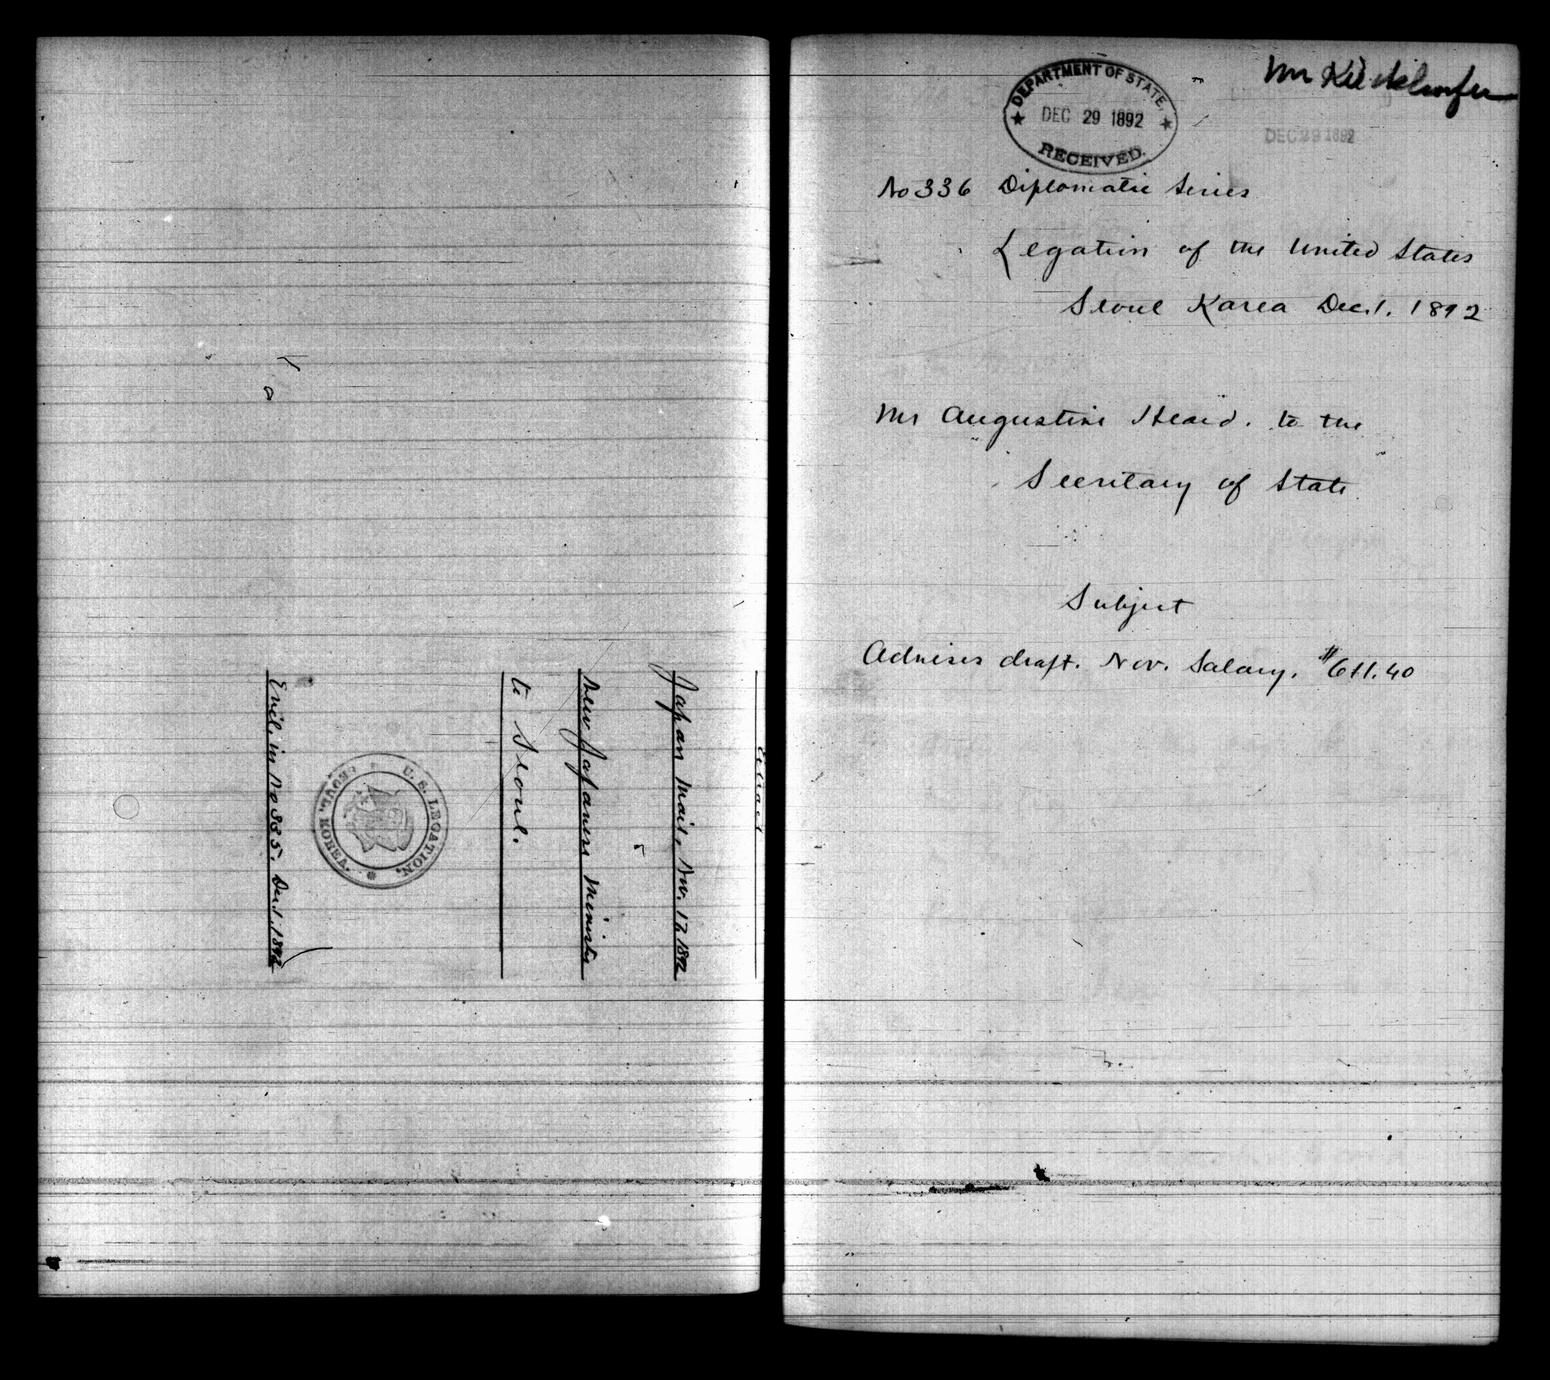 Extract
Japan Mail, Nov. 17, 1892
New Japanese Minister
to Seoul.
U. S. LEGATION.
SEOUL, KOREA.
Encl. in No 335. Dec 1. 1892
DEPARTMENT OF STATE,
DEC 29 1892
RECEIVED.
Mr
DEC 29 1892
No 336 Diplomatic Series
Legation of the United States
Seoul Korea Dec. 1. 1892
Mr Augustine Heard. to the
Secretary of State
Subject
Advises draft. Nov. Salary. $611.40